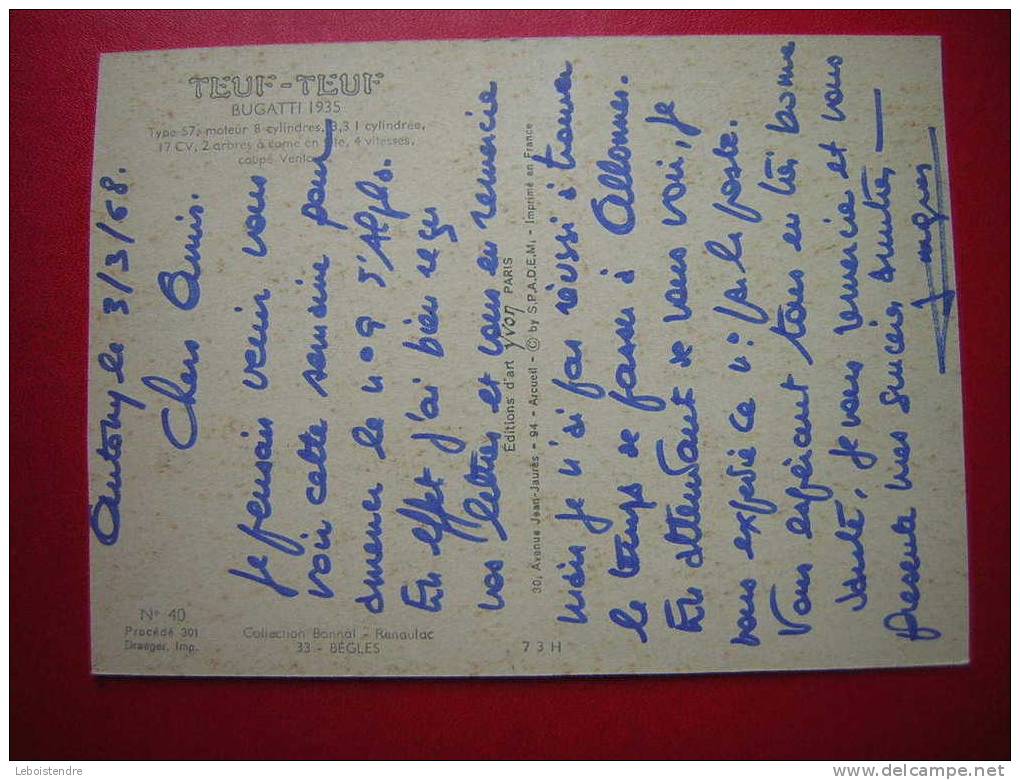 TEUF-TEUF
BUGATTI 1935
Type 57, moteur 8 cylindres, 3,3 l cylindrée,
17 CV, 2 arbres à came en tête, 4 vitesses,
coupé Ventoux
Antony le 3/3/68.
Chers Amis.
Je pensais venir vous
voir cette semaine pour
amener le n° 9 d'
En effet j'ai bien reçu
vos lettres et vous en remercie
mais je n'ai pas réussi à trouver
le temps de passer à Allonnes.
En attendant de vous voir, je
vous expédie ce n° par la poste.
Vous espérant tous en très bonne
santé, je vous remercie et vous
présente mes sincères amitiés
Editions d'art YVON PARIS
30, Avenue Jean-Jaurès - 94 - Arcueil - © by S.P.A.D.E.M. - Imprimé en France
N° 40
Procédé 301
Draeger, Imp.
Collection Bonnal - Renaulac
33 - BÈGLES
7 3 H
Leboistendre
delcampe.net